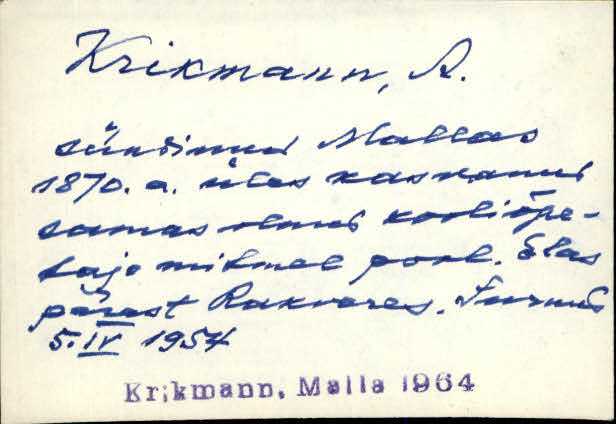 Krikmann, A.
sündinud Mallas
1870. a. üles kasvanud
samas olnud kooliõpe-
taja mitmel pool. Elas
pärast Rakveres. Surnud
5. IV 1954
Krikmann, Malla 1964